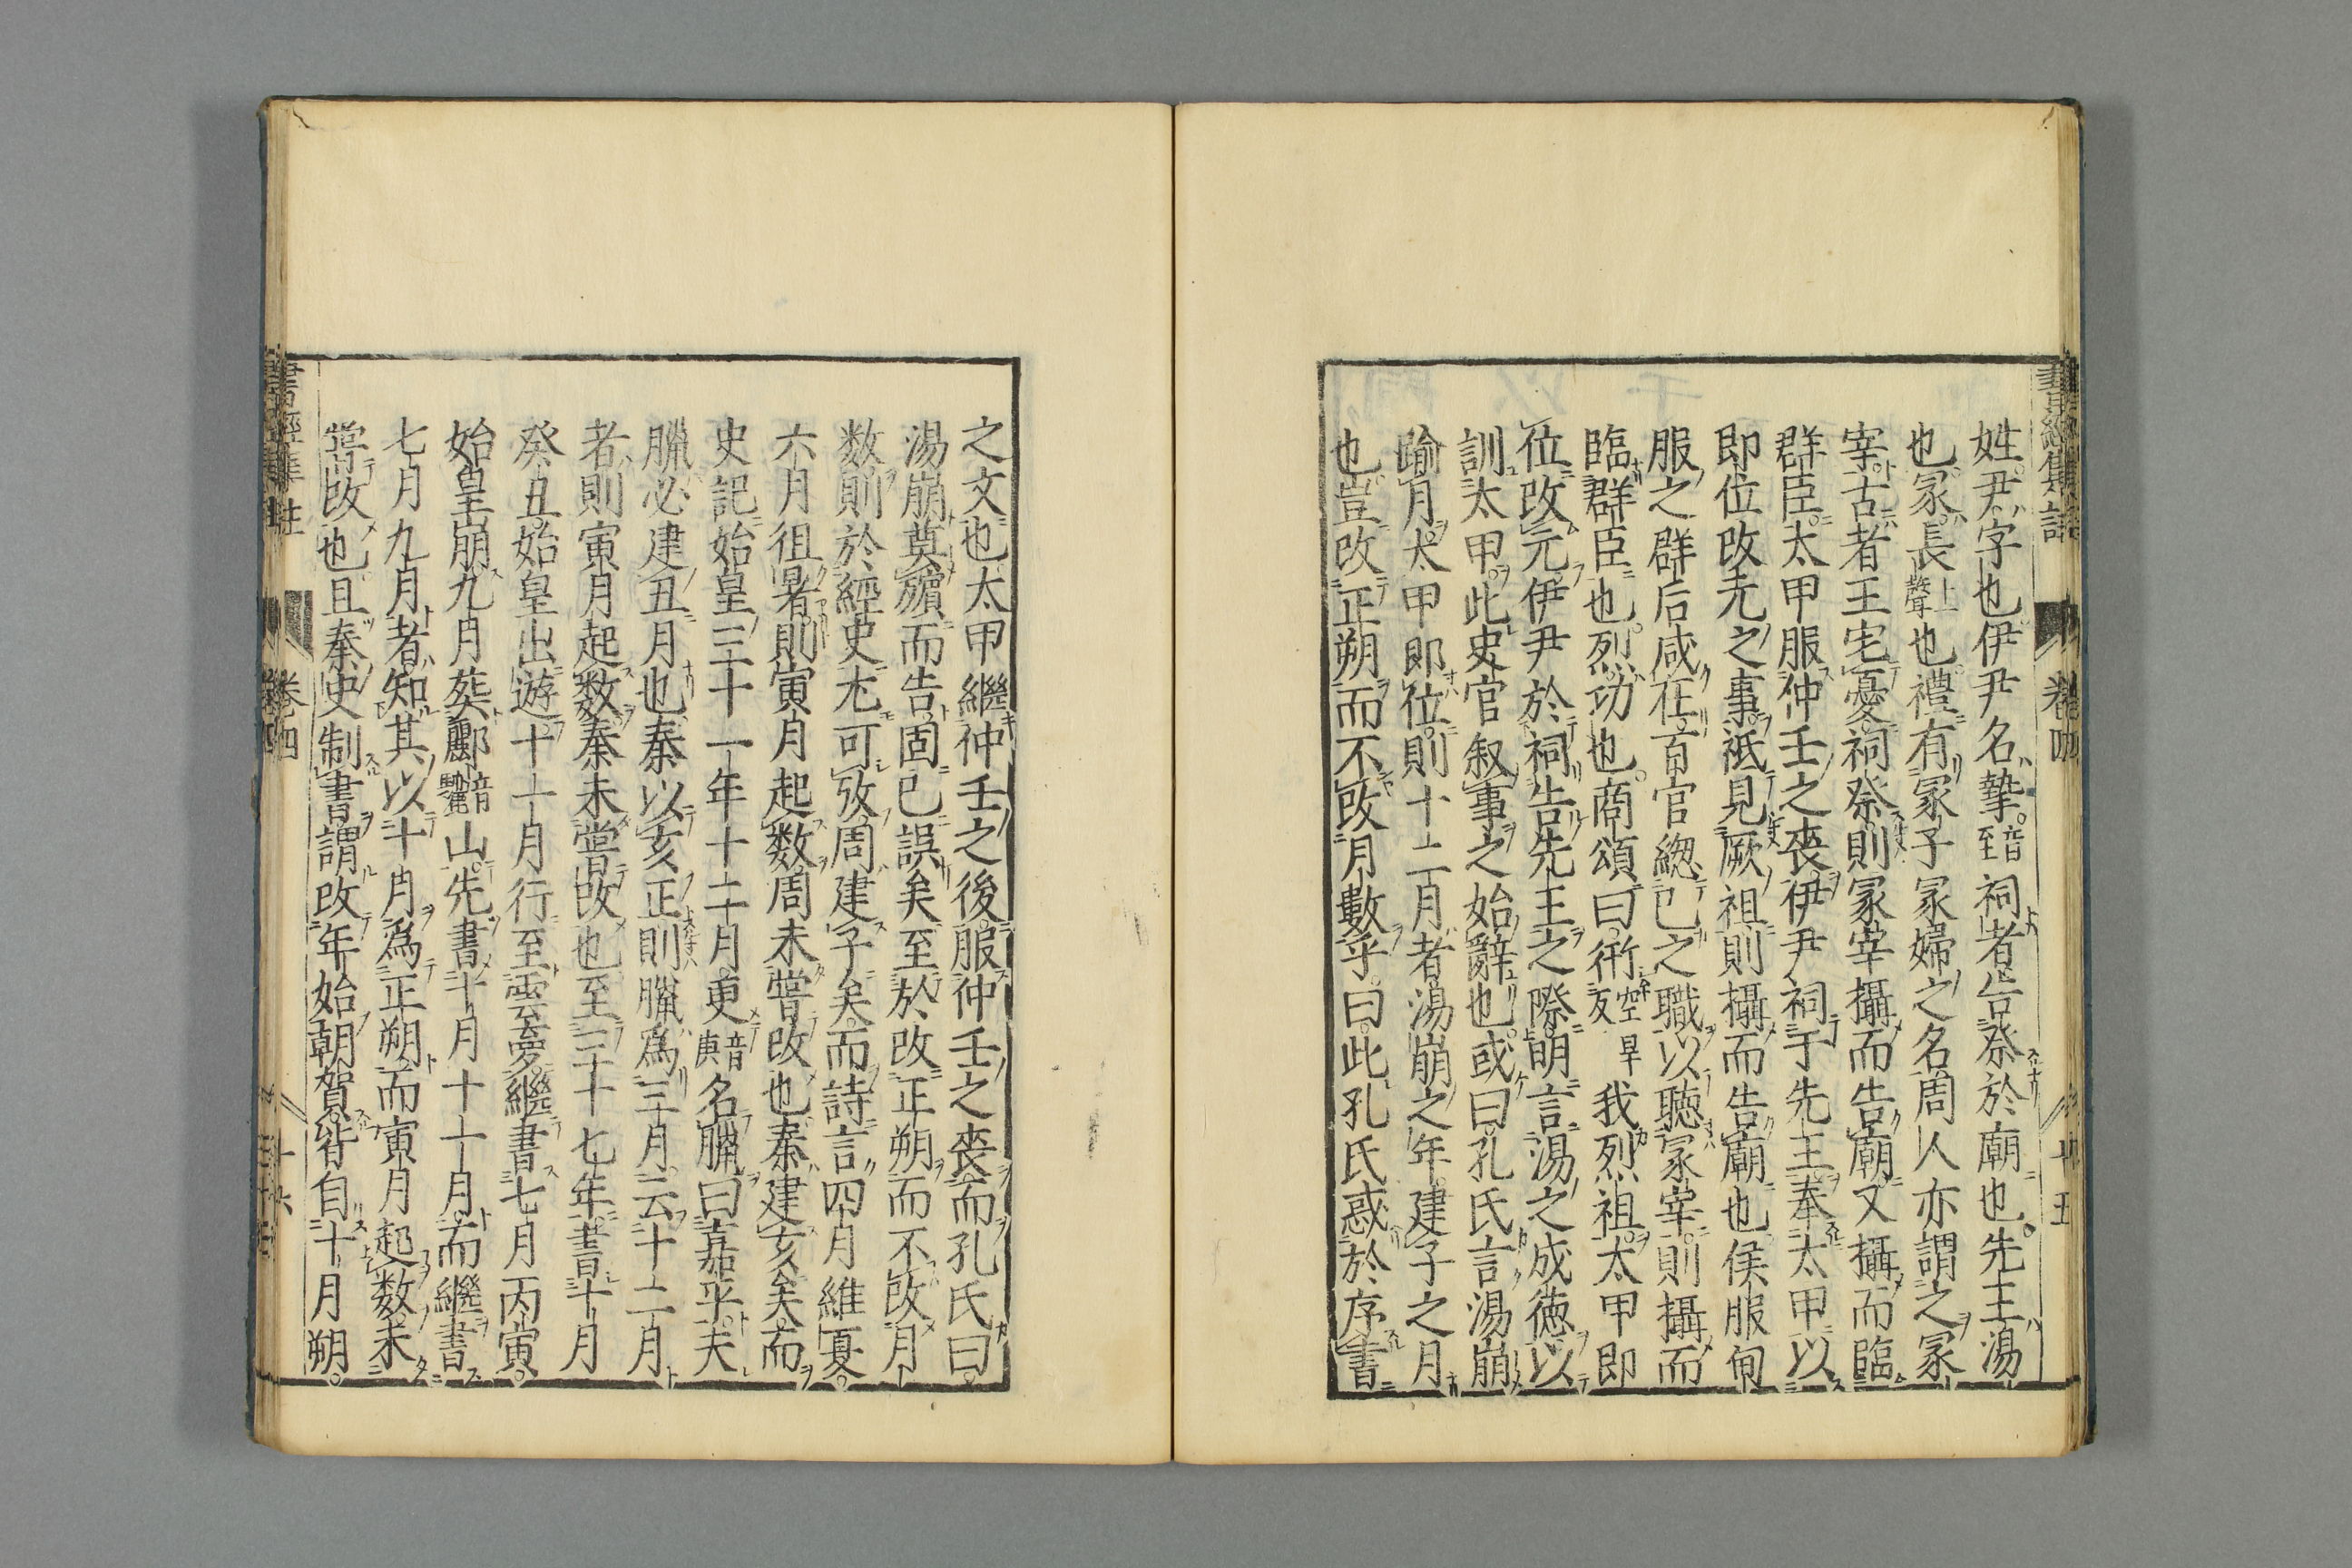 書經集註 卷四 十五
姓尹字也伊尹名摯音至祠者告祭於廟也先王湯
也冢長上聲也禮有冢子冢婦之名周人亦謂之冢
宰古者王宅憂祠祭則冢宰攝而告廟又攝而臨
群臣太甲服仲壬之喪伊尹祠于先王奉太甲以
即位改元之事祗見厥祖則攝而告廟也侯服甸
服之群后咸在百官緫己之職以聴冢宰則攝而
臨群臣也烈功也商頌曰衎空旱反我烈祖太甲即
位改元伊尹於祠告先王之際明言湯之成徳以
訓太甲此史官叙事之始辭也或曰孔氏言湯崩
踰月太甲即位則十二月者湯崩之年建子之月
也豈改正朔而不改月數乎曰此孔氏惑於序書
之文也太甲繼仲壬之後服仲壬之喪而孔氏曰
湯崩奠殯而告固已誤矣至於改正朔而不改月
数則於經史尤可攷周建子矣而詩言四月維夏
六月徂暑則寅月起数周未嘗改也秦建亥矣而
史記始皇三十一年十二月更音庚名臘曰嘉平夫
臘必建丑月也秦以亥正則臘爲三月云十二月
者則寅月起数秦未嘗改也至三十七年書十月
癸丑始皇出遊十一月行至雲夢繼書七月丙寅
始皇崩九月葬酈音驪山先書十月十一月而繼書
七月九月者知其以十月爲正朔而寅月起数未
嘗改也且秦史制書謂改年始朝賀皆自十月朔
書經集註 卷四 十六